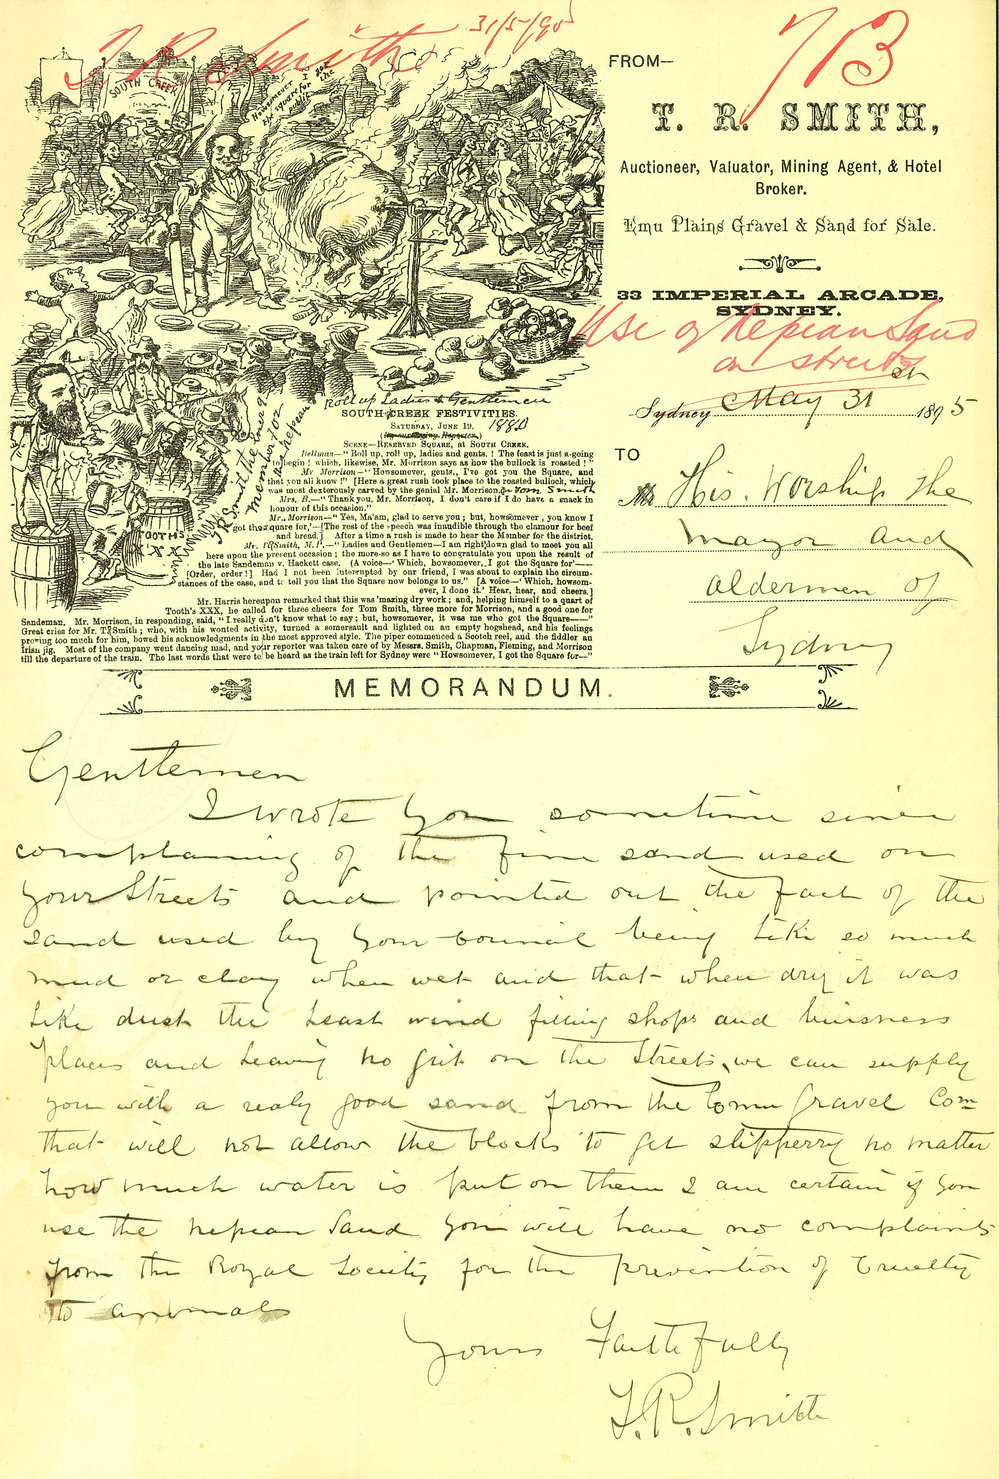 T. R. Smith
31/5/95
713
FROM—
T. R. SMITH,
Auctioneer, Valuator, Mining Agent, & Hotel
Broker.
Emu Plains Gravel & Sand for Sale.
33 IMPERIAL ARCADE,
SYDNEY.
Use of Nepean Sand
on streets
Sydney May 31st 1895
TO
His Worship the
Mayor and
aldermen of
Sydney
SOUTH CREEK
Howsomever I got
the square for the
public
TOOTH'S
XXX
Roll up Ladies & Gentlemen
SOUTH CREEK FESTIVITIES.
SATURDAY, JUNE 19. 1880
SCENE—RESERVED SQUARE, AT SOUTH CREEK.
Bellman—"Roll up, roll up, ladies and gents. ! The feast is just a-going
to begin ! which, likewise, Mr. Morrison says as how the bullock is roasted !"
Mr Morrison—"Howsomever, gents., I've got you the Square, and
that you all know !" [Here a great rush took place to the roasted bullock, which
was most dexterously carved by the genial Mr. Morrison & Tom Smith
Mrs. B.—"Thank you, Mr. Morrison, I don't care if I do have a snack in
honour of this occasion."
Mr. Morrison—"Yes, Ma'am, glad to serve you ; but, howsomever, you know I
got the square for,'—[The rest of the speech was inaudible through the clamour for beef
and bread.] After a time a rush is made to hear the Member for the district.
Mr. T R Smith, M.P.—"Ladies and Gentlemen—I am right down glad to meet you all
here upon the present occasion ; the more so as I have to congratulate you upon the result of
the late Sandeman v. Hackett case. (A voice—' Which, howsomever, I got the Square for'——
[Order, order !] Had I not been interrupted by our friend, I was about to explain the circum-
stances of the case, and to tell you that the Square now belongs to us." [A voice—' Which, howsom-
ever, I done it.' Hear, hear, and cheers.]
Mr. Harris hereupon remarked that this was 'mazing dry work ; and, helping himself to a quart of
Tooth's XXX, he called for three cheers for Tom Smith, three more for Morrison, and a good one for
Sandeman. Mr. Morrison, in responding, said, "I really don't know what to say ; but, howsomever, it was me who got the Square——"
Great cries for Mr. T R Smith ; who, with his wonted activity, turned a somersault and lighted on an empty hogshead, and his feelings
proving too much for him, bowed his acknowledgments in the most approved style. The piper commenced a Scotch reel, and the fiddler an
Irish jig. Most of the company went dancing mad, and your reporter was taken care of by Messrs. Smith, Chapman, Fleming, and Morrison
till the departure of the train. The last words that were to be heard as the train left for Sydney were "Howsomever, I got the Square for—"
T R Smith the
member for
the Nepean
MEMORANDUM.
Gentlemen
I wrote you sometime since
complaning of the fine sand used on
your Streets and pointed out the fact of the
sand used by your council being like so much
mud or clay when wet and that when dry it was
like dust the least wind filling shops and buisness
places and leaving no grit on the Streets, we can supply
you with a realy good sand from the Emu Gravel Com
that will not allow the blocks to get slipperry no matter
how much water is put on them I am certain if you
use the Nepean Sand you will have no complaints
from the Royal Society for the prevention of Cruelty
to animals
Yours Faithfully
T. R. Smith